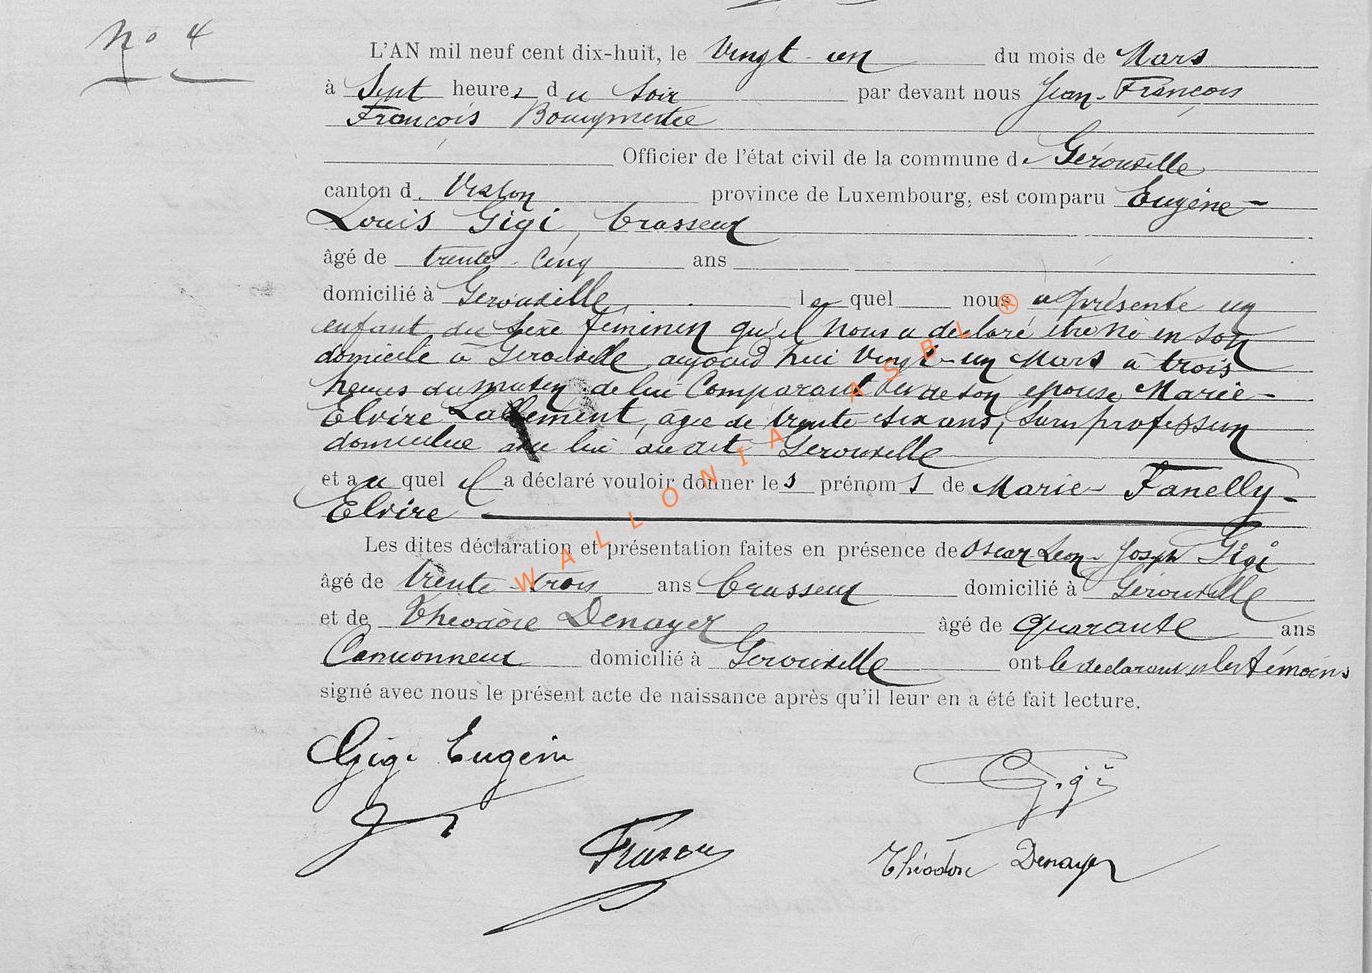 No 4
L'AN mil neuf cent dix-huit, le Vingt-un du mois de Mars
à Sept heures du soir par devant nous Jean-François
François
Officier de l'état civil de la commune de Gérouville
canton d. Virton province de Luxembourg, est comparu Eugène-
Louis Gigi, brasseur
âgé de trente-cinq ans
domicilié à Gérouville, lequel nous a présenté un
enfant du sexe féminin qu'il nous a déclaré être né en son
domicile à Gérouville aujourd'hui Vingt-un Mars à trois
heures du matin de lui Comparant et de son épouse Marie-
Elvire Lallement, agée de trente-six ans, sans profession
domiciliée avec lui au dit Gérouville
et auquel il a déclaré vouloir donner les prénoms de Marie-Fanelly-
Elvire
Les dites déclaration et présentation faites en présence de Oscar Léon-Joseph Gigi
âgé de trente-trois ans brasseur domicilié à Gérouville
et de Théodore Denayer âgé de quarante ans
Cantonnier domicilié à Gérouville ont le déclarant et les témoins
signé avec nous le présent acte de naissance après qu'il leur en a été fait lecture.
Gigi Eugène
Gigi
Théodore Denayer
WALLONIA ASBL ®